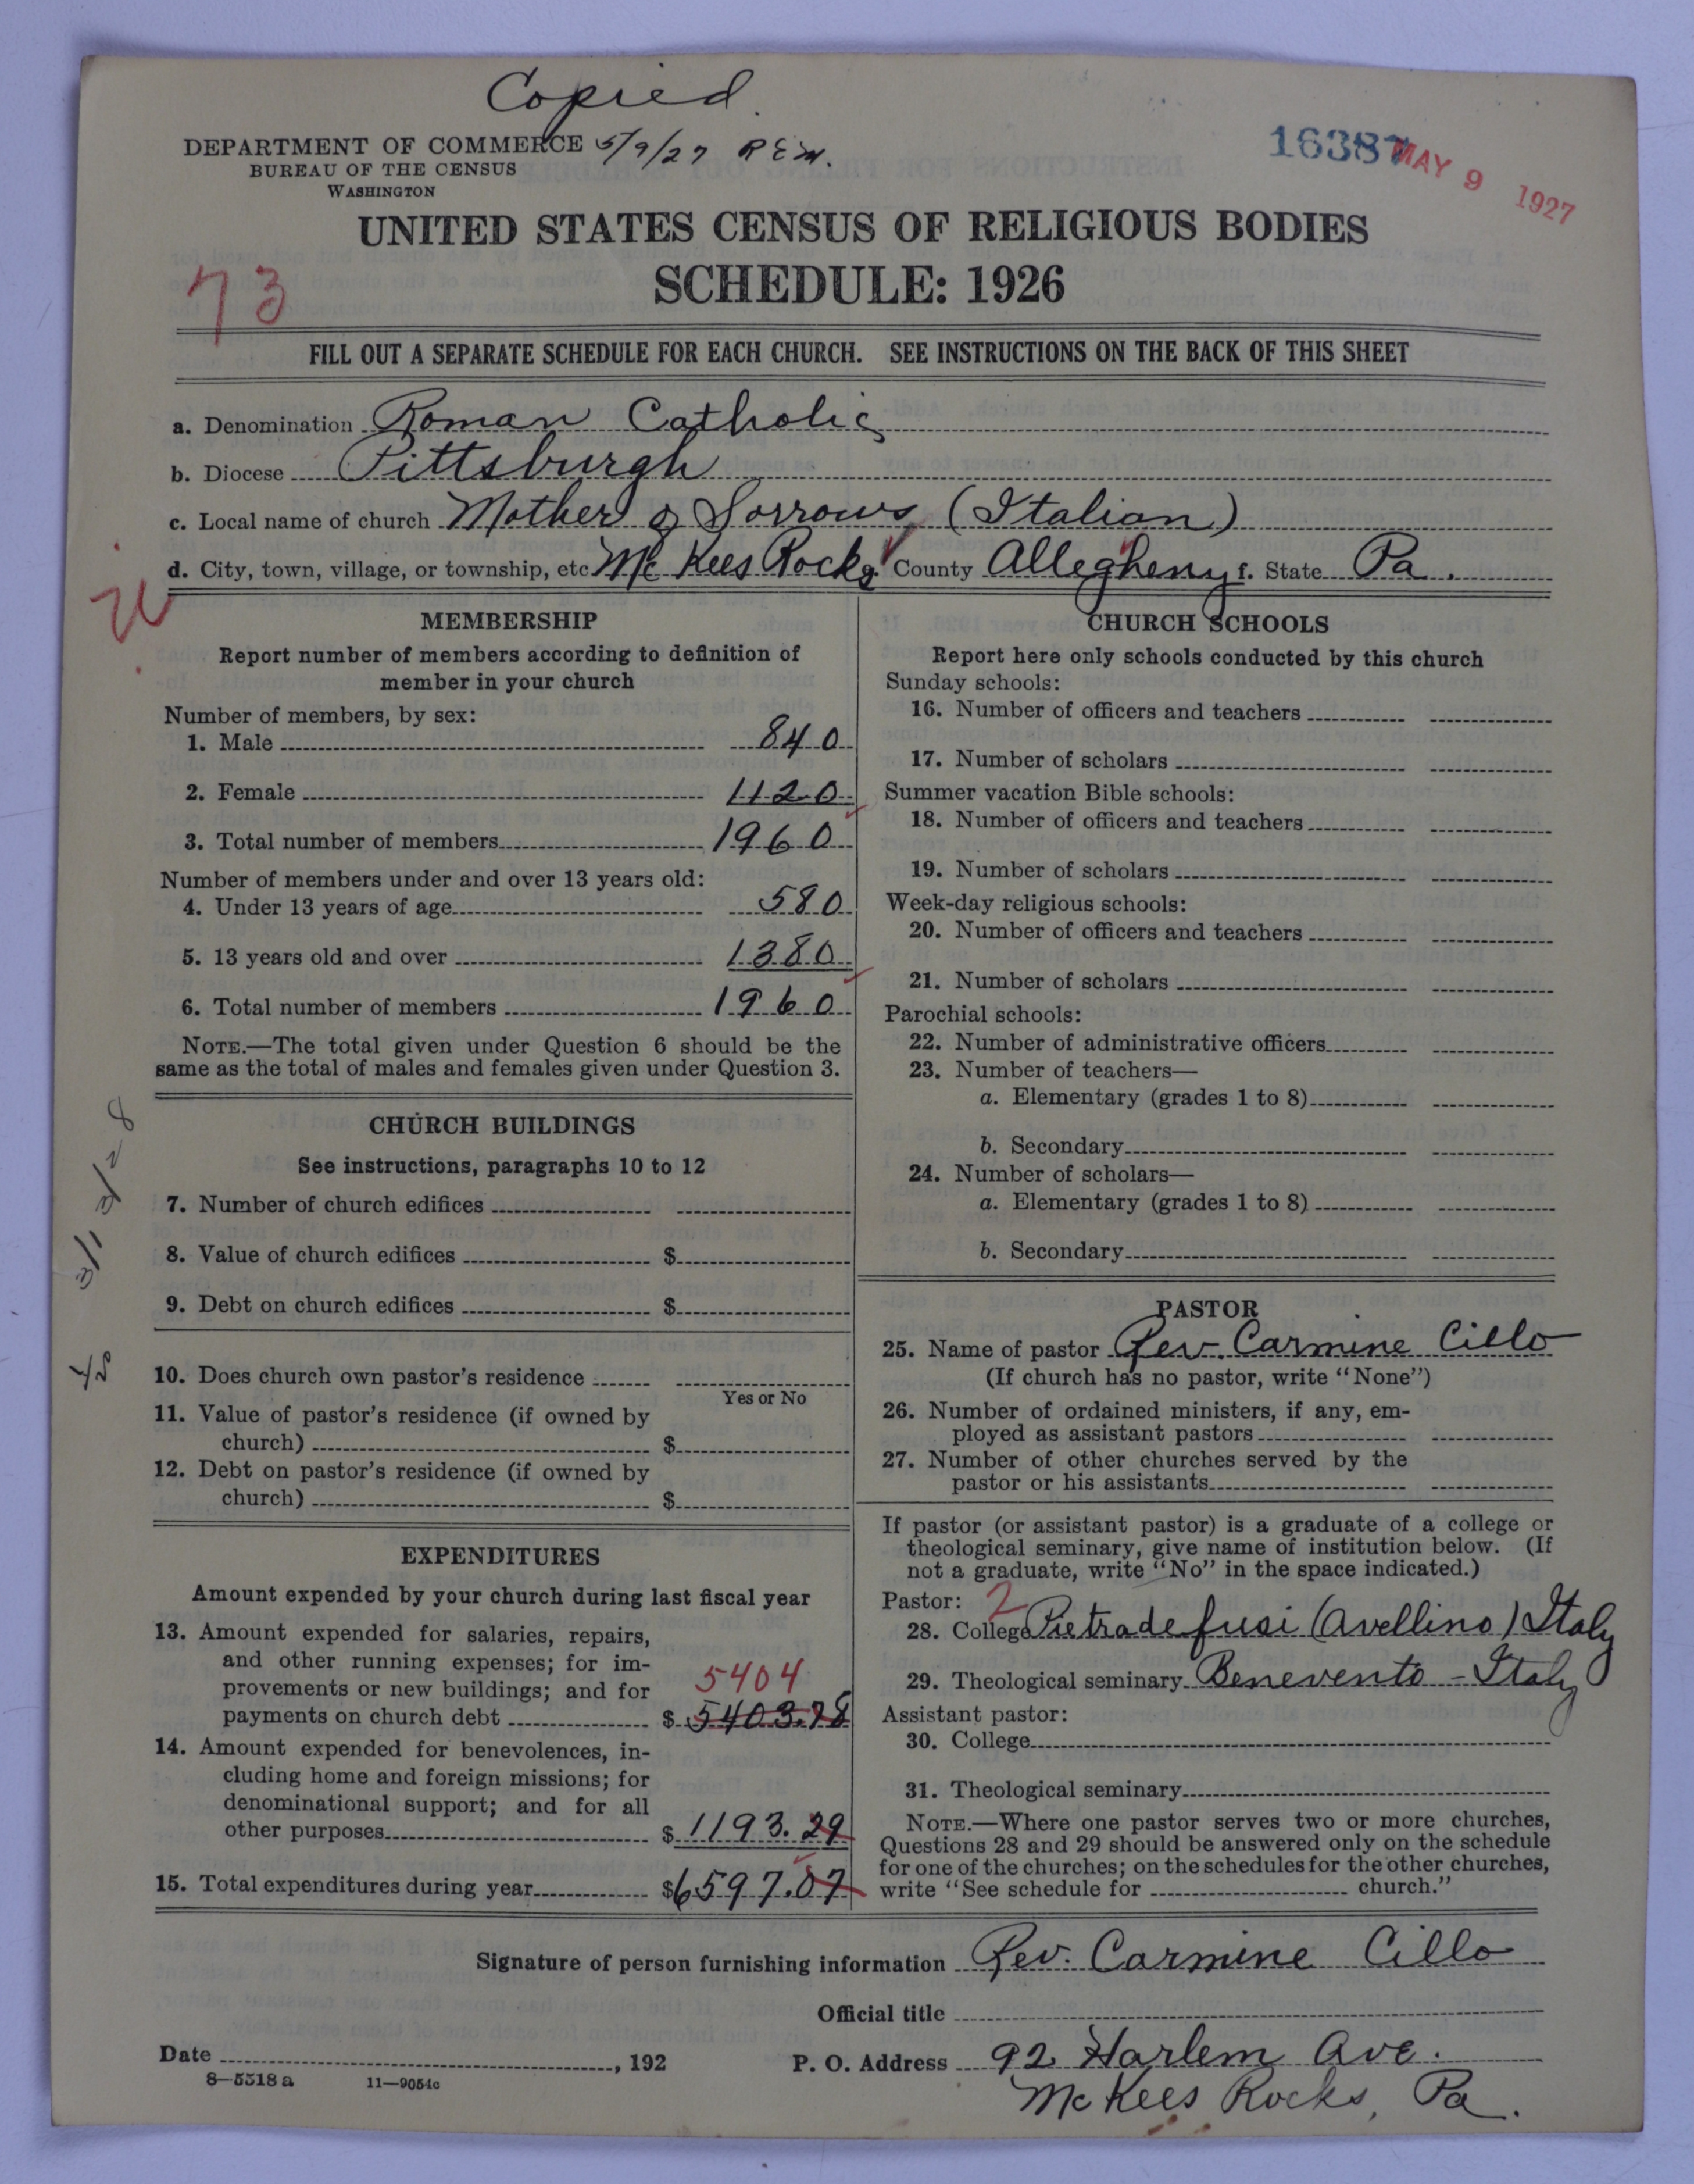 Copied
DEPARTMENT OF COMMERCE 5/9/27 R E M.
BUREAU OF THE CENSUS
WASHINGTON
16387 MAY 9 1927
UNITED STATES CENSUS OF RELIGIOUS BODIES
SCHEDULE: 1926
73
FILL OUT A SEPARATE SCHEDULE FOR EACH CHURCH. SEE INSTRUCTIONS ON THE BACK OF THIS SHEET
a. Denomination Roman Catholic
b. Diocese Pittsburgh
c. Local name of church Mother of Sorrows (Italian)
d. City, town, village, or township, etc McKees Rocks County Allegheny f. State Pa.
MEMBERSHIP
Report number of members according to definition of
member in your church
Number of members, by sex:
1. Male 840
2. Female 1120
3. Total number of members 1960
Number of members under and over 13 years old:
4. Under 13 years of age 580
5. 13 years old and over 1380
6. Total number of members 1960
NOTE.—The total given under Question 6 should be the
same as the total of males and females given under Question 3.
CHURCH BUILDINGS
See instructions, paragraphs 10 to 12
7. Number of church edifices
8. Value of church edifices $
9. Debt on church edifices $
10. Does church own pastor's residence
Yes or No
11. Value of pastor's residence (if owned by
church) $
12. Debt on pastor's residence (if owned by
church) $
EXPENDITURES
Amount expended by your church during last fiscal year
13. Amount expended for salaries, repairs,
and other running expenses; for im-
provements or new buildings; and for 5404
payments on church debt $ 5403.78
14. Amount expended for benevolences, in-
cluding home and foreign missions; for
denominational support; and for all
other purposes $ 1193.29
15. Total expenditures during year $6597.07
CHURCH SCHOOLS
Report here only schools conducted by this church
Sunday schools:
16. Number of officers and teachers
17. Number of scholars
Summer vacation Bible schools:
18. Number of officers and teachers
19. Number of scholars
Week-day religious schools:
20. Number of officers and teachers
21. Number of scholars
Parochial schools:
22. Number of administrative officers
23. Number of teachers—
a. Elementary (grades 1 to 8)
b. Secondary
24. Number of scholars—
a. Elementary (grades 1 to 8)
b. Secondary
PASTOR
25. Name of pastor Rev. Carmine Cillo
(If church has no pastor, write "None")
26. Number of ordained ministers, if any, em-
ployed as assistant pastors
27. Number of other churches served by the
pastor or his assistants
If pastor (or assistant pastor) is a graduate of a college or
theological seminary, give name of institution below. (If
not a graduate, write "No" in the space indicated.)
Pastor: 2
28. College Pietradefusi (Avellino) Italy
29. Theological seminary Benevento - Italy
Assistant pastor:
30. College
31. Theological seminary
NOTE.—Where one pastor serves two or more churches,
Questions 28 and 29 should be answered only on the schedule
for one of the churches; on the schedules for the other churches,
write "See schedule for church."
Signature of person furnishing information Rev. Carmine Cillo
Official title
Date , 192 P. O. Address 92 Harlem Ave.
8—5518 a 11—9054c McKees Rocks, Pa.